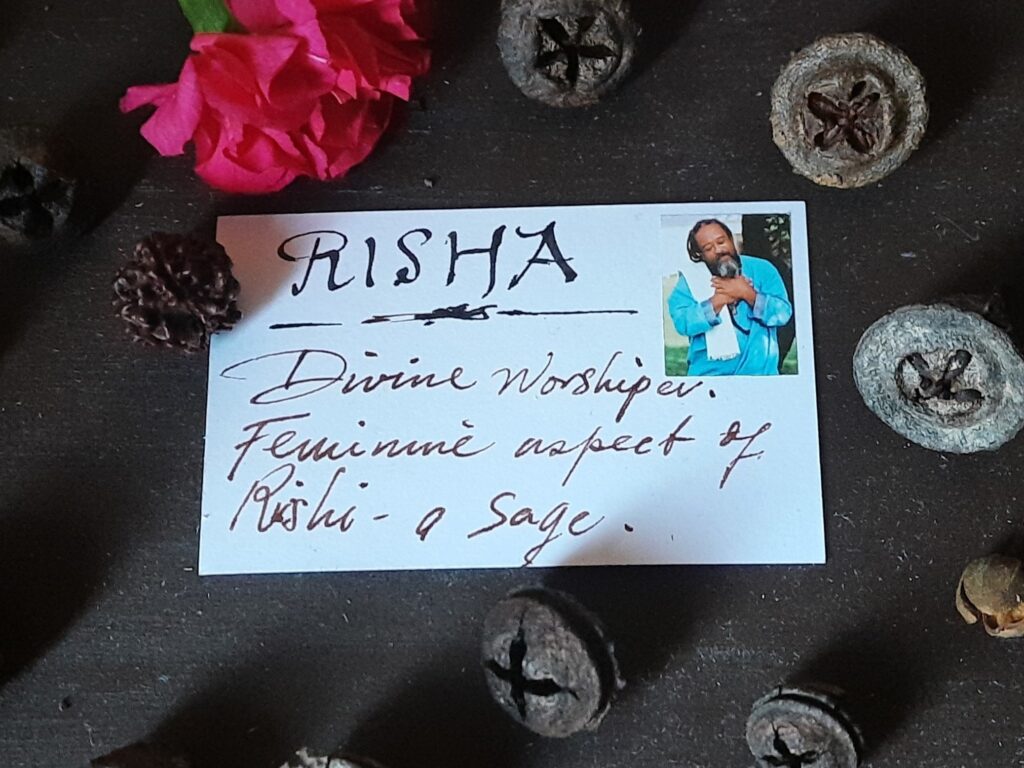 RISHA
Divine Worshiper.
Feminine aspect of
Rishi - a Sage.